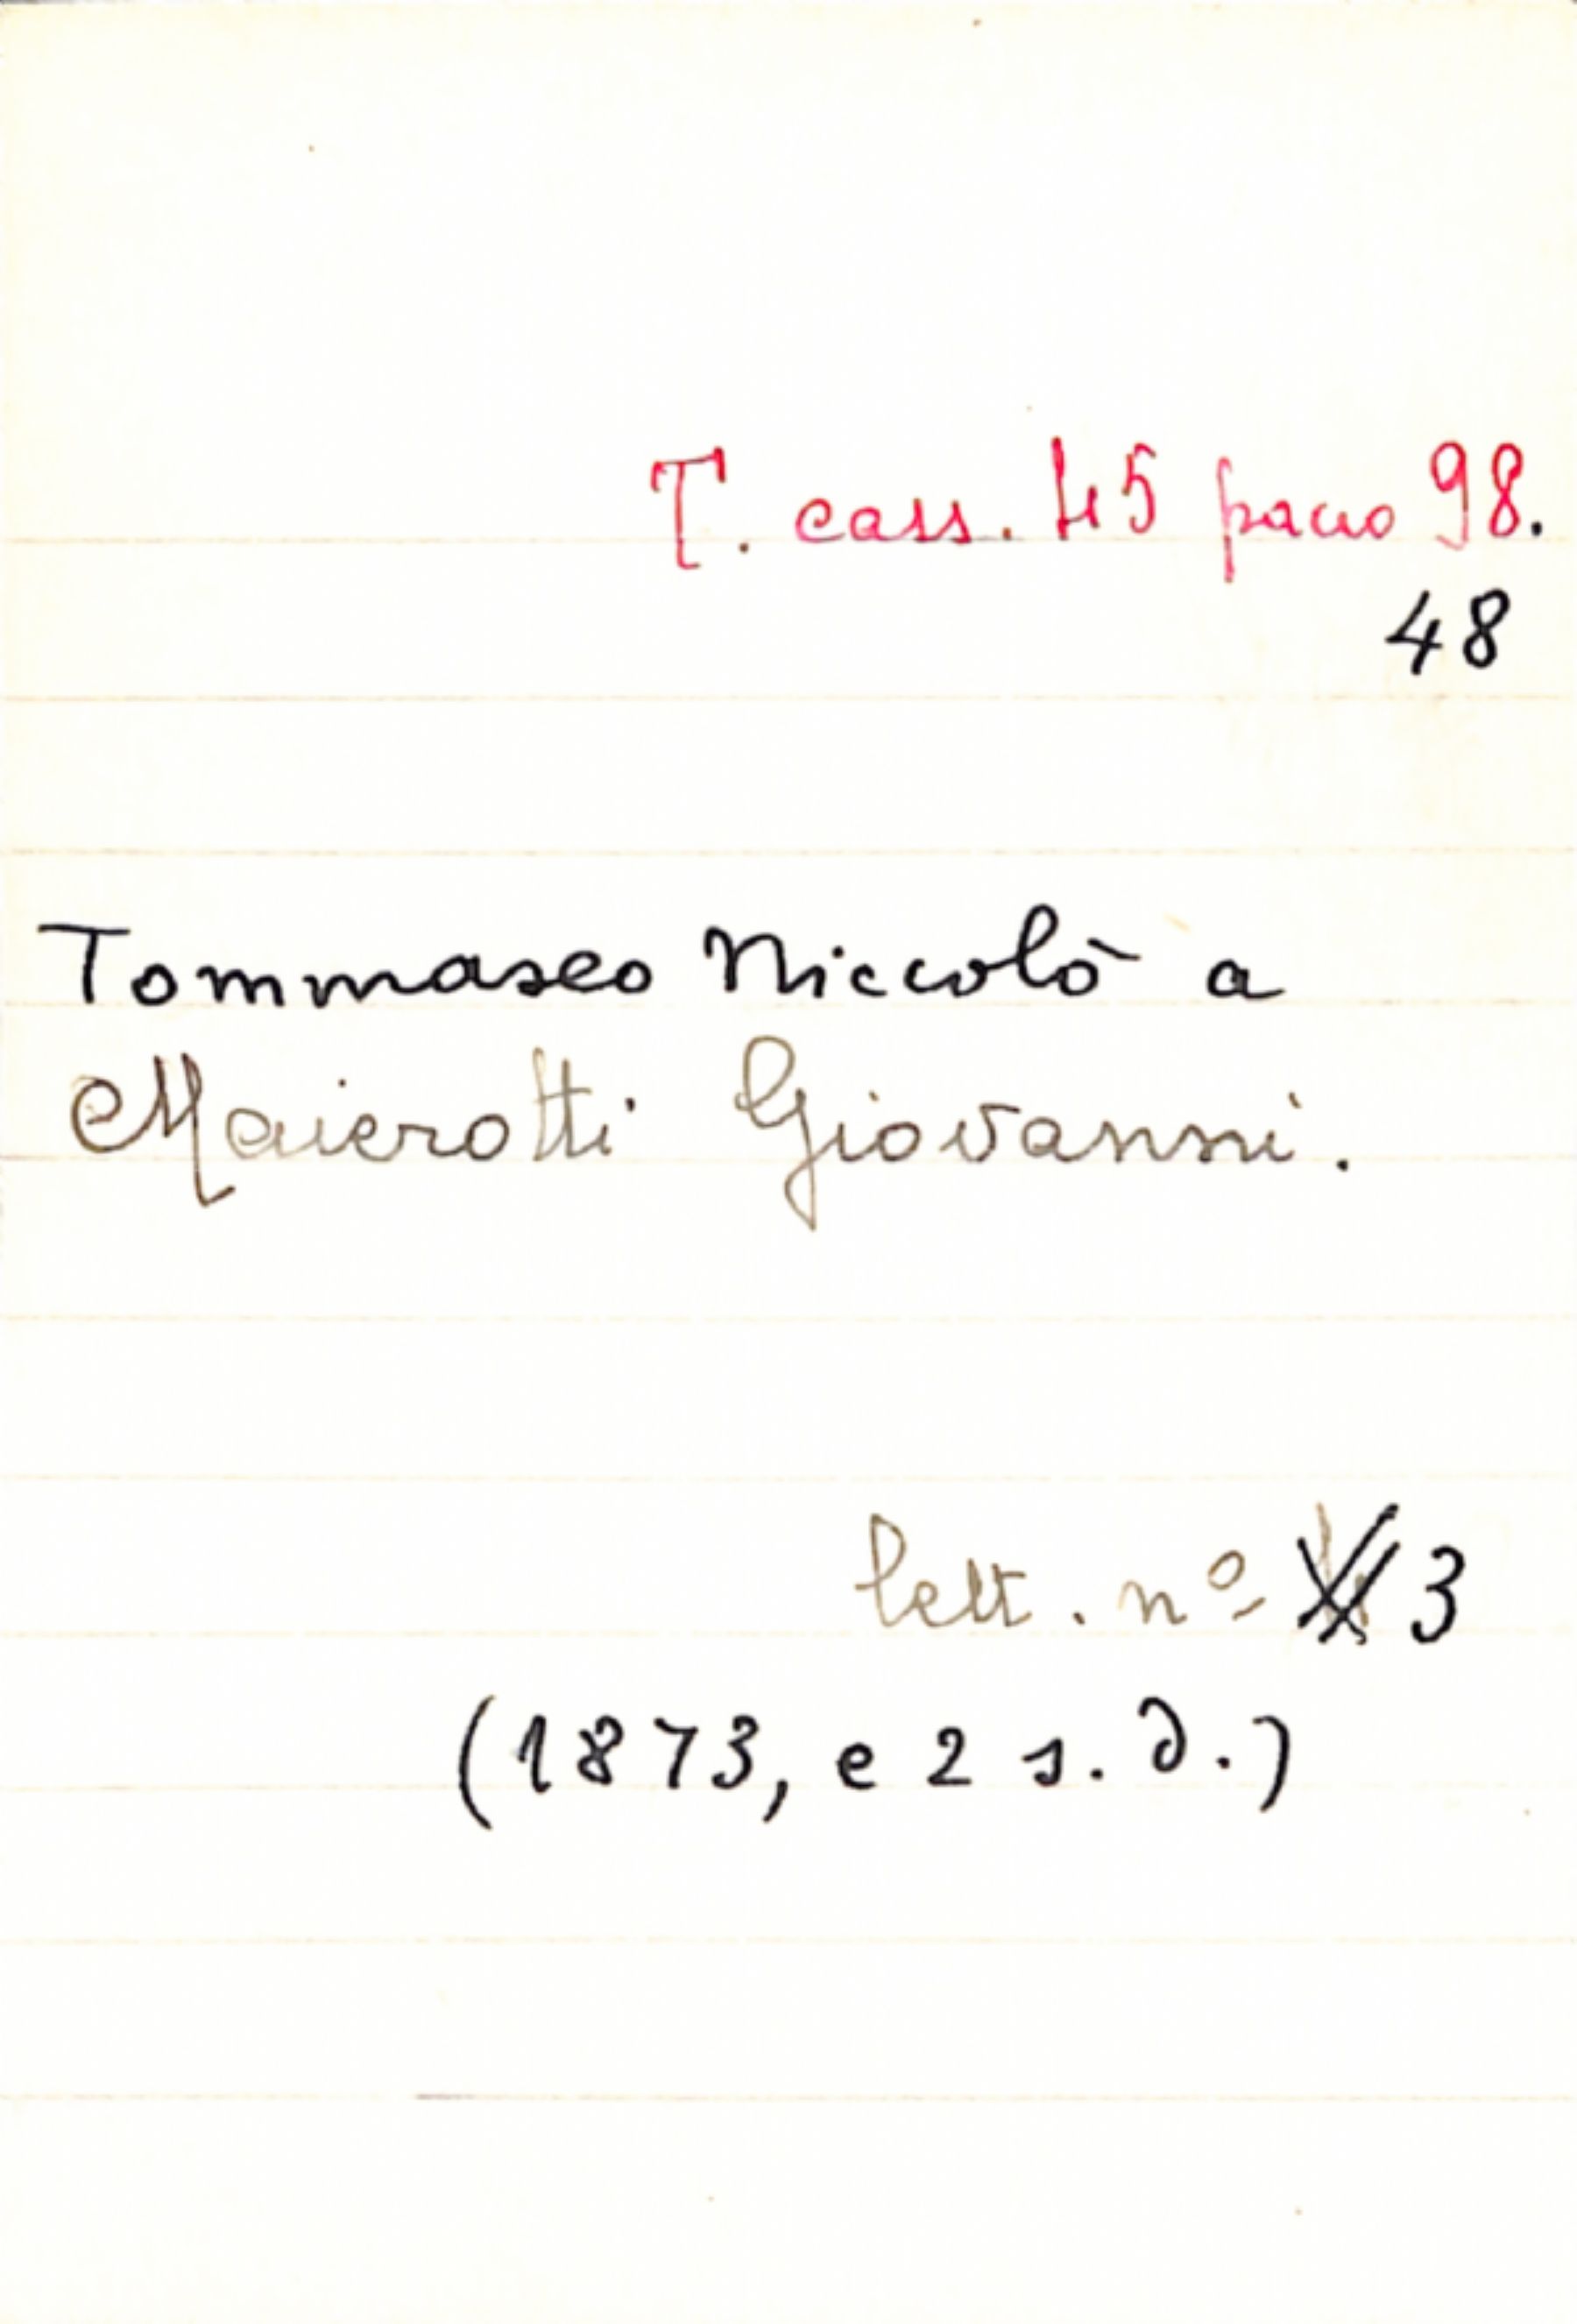 T. cass. 45 pacco 98.
48
Tommaseo Niccolò a
Maierotti Giovanni.
lett. nº 3
(1873, e 2 s. d.)